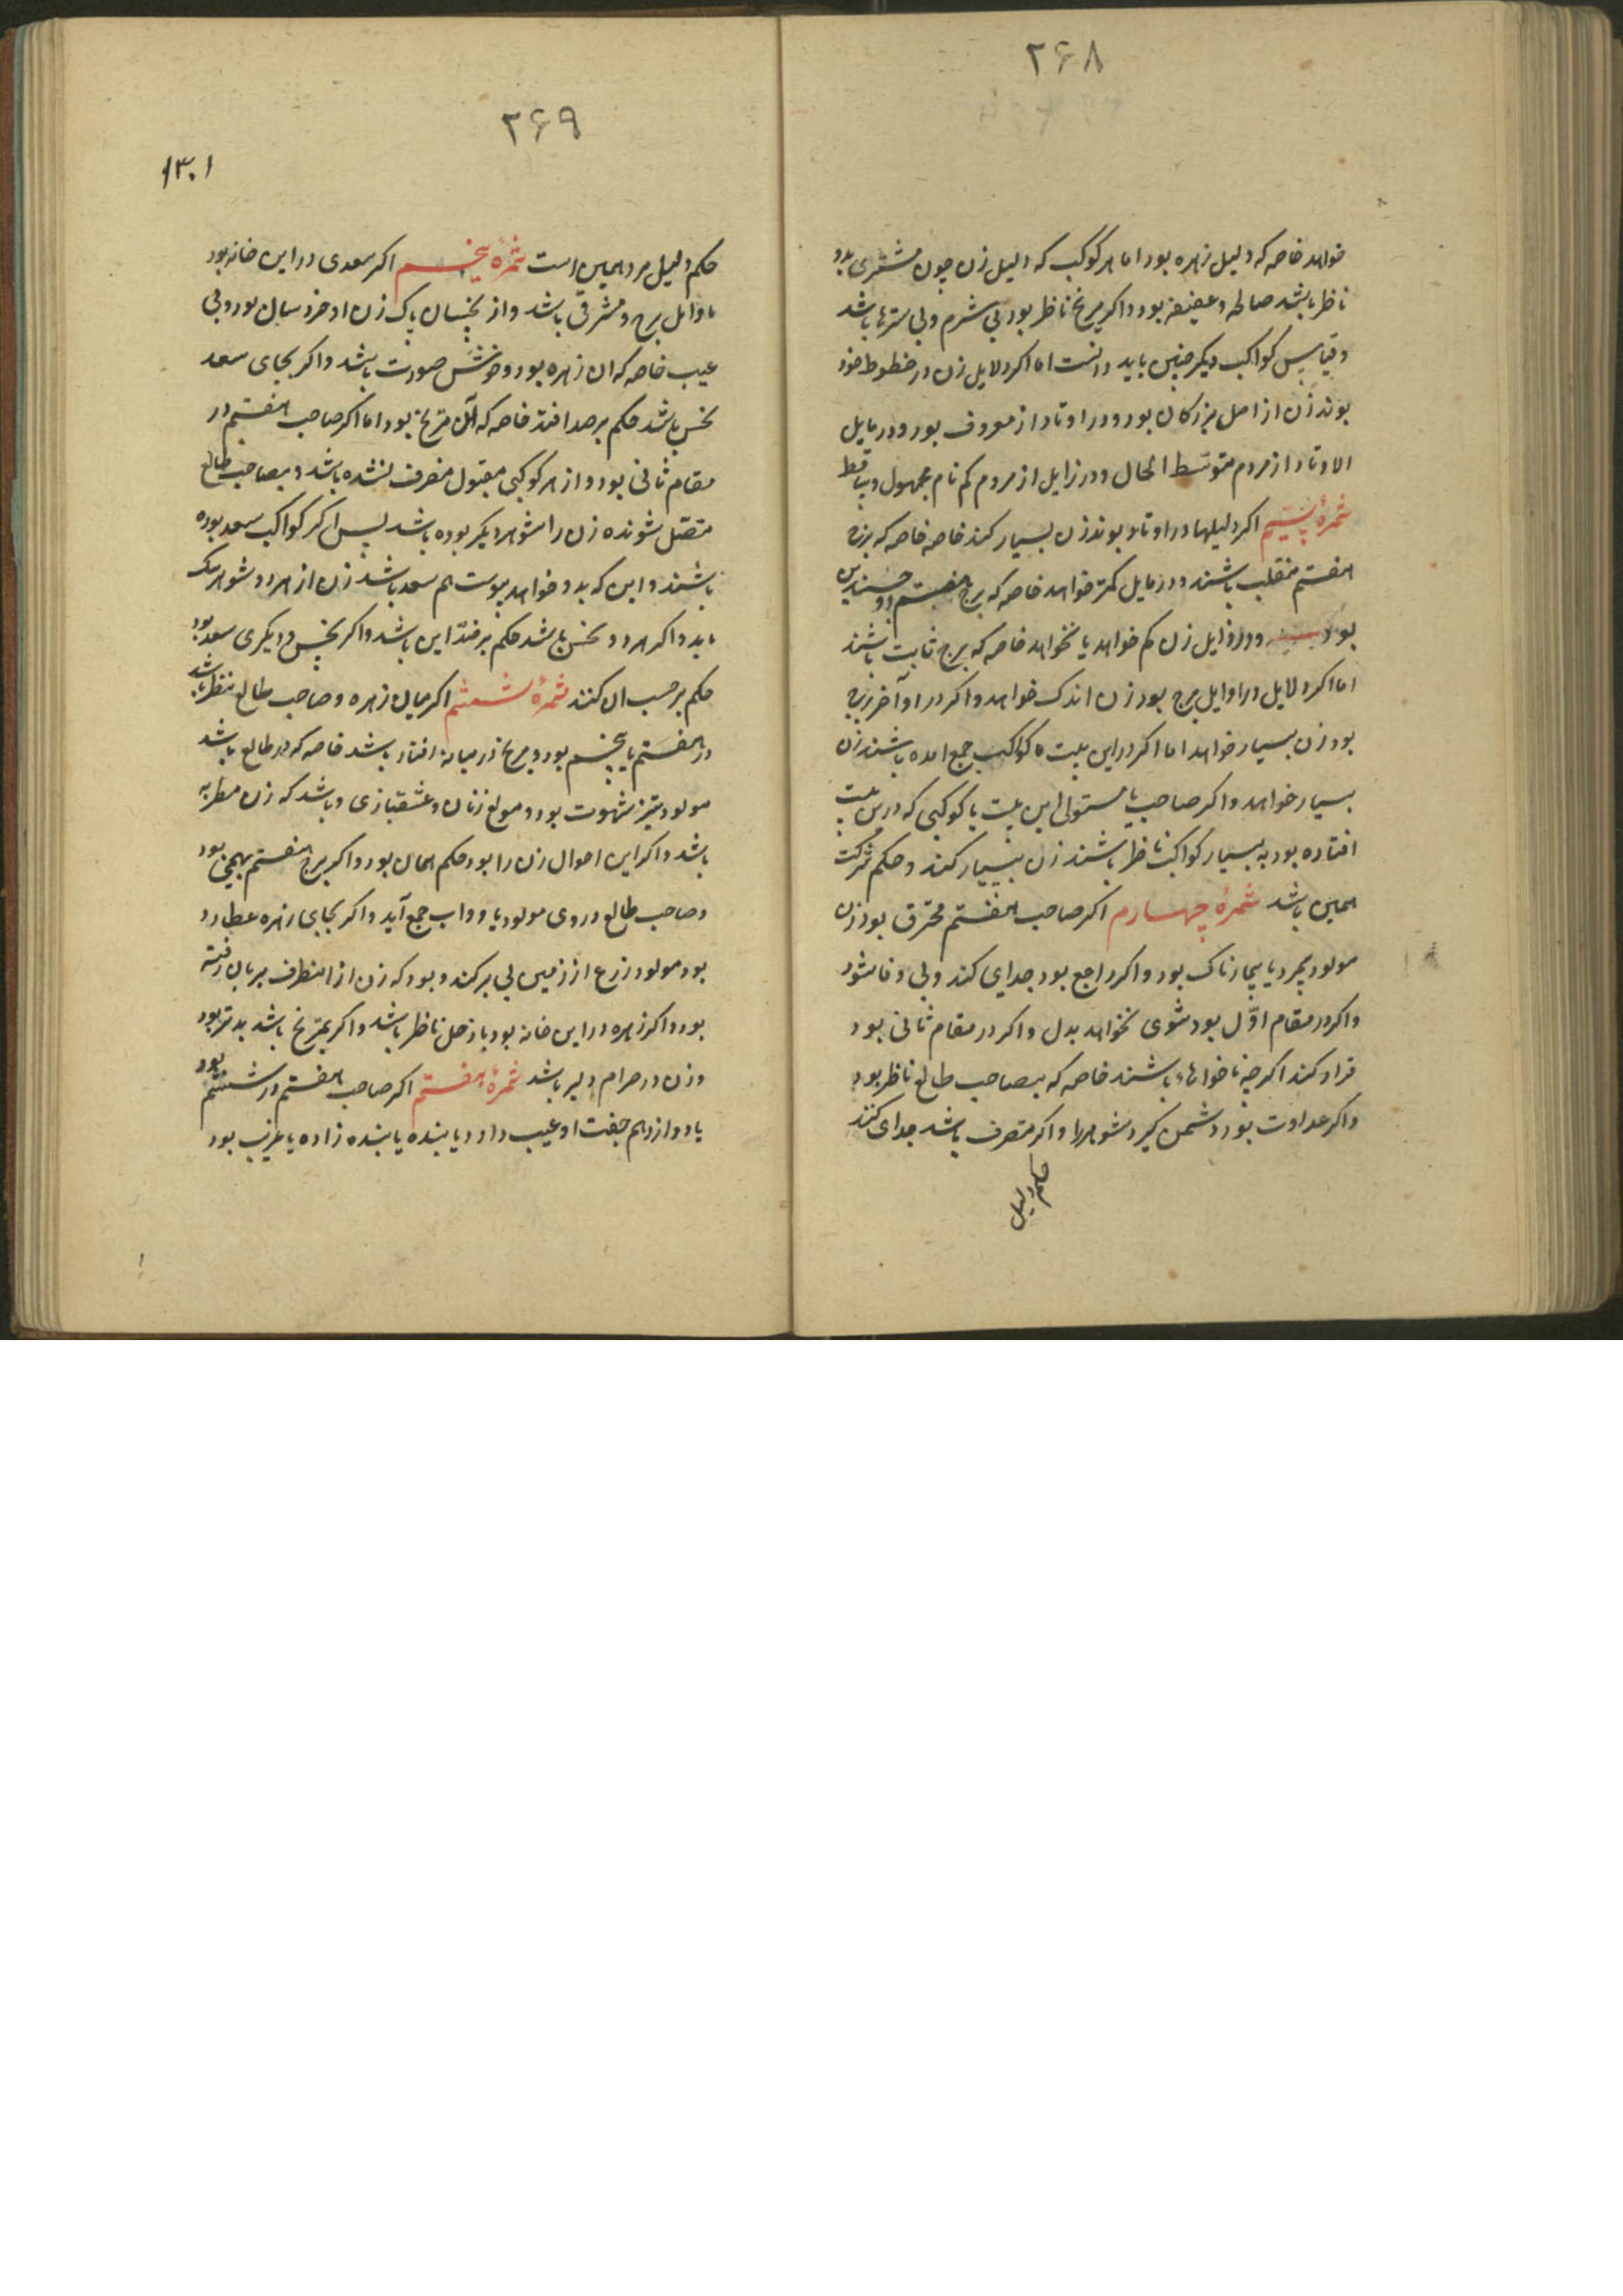 ۲۶۸
خواهد خاصه که دلیل زهره بود اما هر کوکب که دلیل زن چون مشتری بدو
ناظر باشد صالحه و عفیفه بود و اکر مریخ ناظر بود بی شرم و بی ستر باشد
و قیاس کواکب دیکر چنین باید دانست اما اکر دلایل زن در خطوط خود
بوند زن از اصل بزرکان بود و در اوتاد از معروف بود و در مایل
الاوتاد از مردم متوسط الحال و در زایل از مردم کم نام مجهول و ساقط
ثمرهٔ سیم اکر دلیلها در اوتاد بوند زن بسیار کند خاصه خاصه که برج
هفتم منقلب باشند و در مایل کمتر خواهد خاصه که برج هفتم ذو جسدین
بود و در زایل زن کم خواهد یا نخواهد خاصه که برج ثابت باشند
اما اکر دلایل در اوایل برج بود زن اندک خواهد و اکر در اواخر برج
بود زن بسیار خواهد اما اکر در این بیت ۵ کواکب جمع امده باشند زن
بسیار خواهد و اکر صاحب یا مستولی این بیت یا کوکبی که درین بیت
افتاده بود به بسیار کواکب ناظر باشند زن بسیار کند و حکم شرکت
همین باشد ثمرهٔ چهارم اکر صاحب هفتم محترق بود زن
مولود بمرد یا بیمارناک بود و اکر راجع بود جدای کند و بی وفا شود
و اکر در مقام اوّل بود شوی نخواهد بدل و اکر در مقام ثانی بود
قرار کند اکر چه ناخواها باشند خاصه که بصاحب طالع ناظر بود
و اکر عداوت بود دشمن کیرد شوهر را و اکر متصرف باشد جدای کند
حکم دلیل
۲۶۹
۱۳۰۱
حکم دلیل مرد همین است ثمرهٔ پنجم اکر سعدی در این خانه بود
باوایل برج و مشرقی باشد و از نحسان پاک زن او خرد سال بود و بی
عیب خاصه که ان زهره بود و خوش صورت باشد و اکر بجای سعد
نحس باشد حکم بر ضد افتد خاصه که ان مریخ بود اما اکر صاحب هفتم در
مقام ثانی بود و از هر کوکبی مقبول منصرف نشده باشد و بصاحب طالع
متصل شونده زن را شوهر دیکر بوده باشد پس اکر کواکب سعد بوده
باشند و این که بدو خواهد پیوست هم سعد باشد زن از هر دو شوهر نیک
یابد و اکر هر دو نحس باشد حکم بر ضد این باشد و اکر نحس و دیکری سعد بود
حکم بر حسب ان کنند ثمرهٔ ششم اکر میان زهره و صاحب طالع نظر باشد
در هفتم یا پنجم بود و مریخ در میانه افتاد باشد خاصه که در طالع باشد
مولود تیز شهوت بود و مولع زنان و عشقبازی و باشد که زن مطربه
باشد و اکر این احوال زن را بود حکم همان بود و اکر برج هفتم بهیمی بود
و صاحب طالع در وی مولود با دواب جمع آید و اکر بجای زهره عطارد
بود مولود زرع از زمین بی بر کند و بود که زن از انطرف بریان رفته
بود و اکر زهره در این خانه بود با زحل ناظر باشد و اکر بمریخ باشد بدتر بود
و زن در حرام دلیر باشد ثمرهٔ هفتم اکر صاحب هفتم در ششم بود
یا دوازدهم جفت او عیب دارد یا بنده یا بنده زاده یا غریب بود